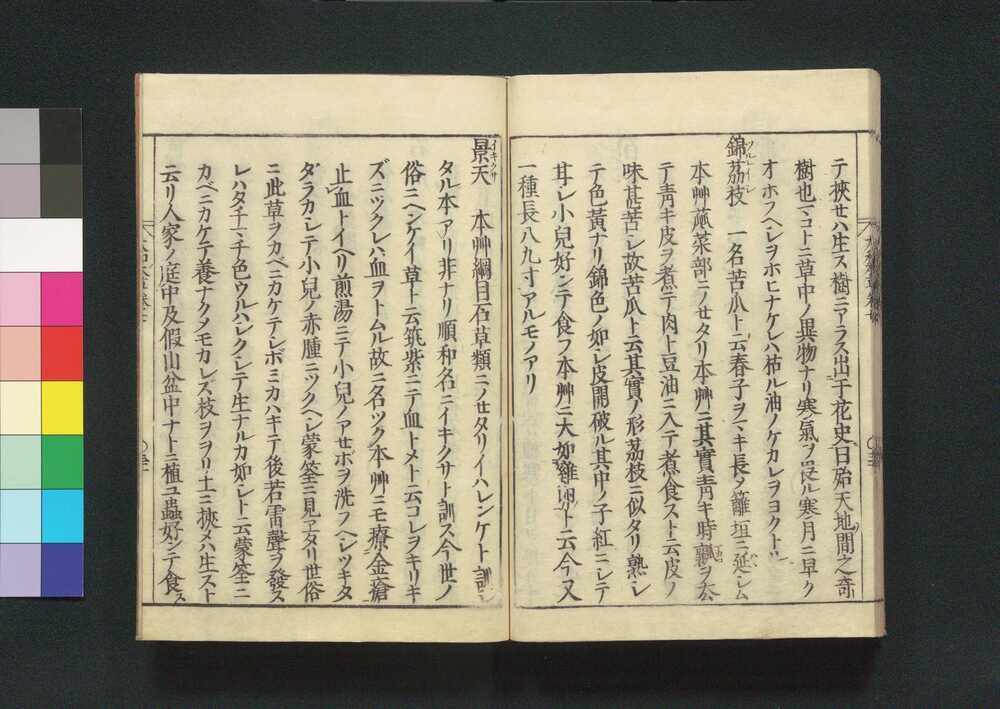 テ挾セハ生ス樹ニアラス出于花史曰殆天地間之奇
樹也マコトニ草中ノ異物ナリ寒氣ヲ畏ル寒月ニ早ク
オホフヘシヲホヒナケレハ枯ル油ノケカレヲヨクトリ
錦茘枝 一名苦瓜ト云春子ヲマキ長シ籬垣ニ延シム
ツルレイシ
本艸蔬菜部ニノセタリ本艸ニ其實青キ時瓤ヲ去
テ青キ皮ヲ煮テ肉上豆油ニ入テ煮食ストニ云皮ノ
味甚苦シ故苦瓜ト云其實ノ形茘枝ニ似タリ熟シ
テ色黄ナリ錦色ノ如シ皮開破ル其中ノ子紅ニシテ
甘シ小兒好ンテ食フ本艸ニ大如雞卵ト云今又
一種長八九寸アルモノアリ
景天 本艸綱目石草類ニノセタリイハレンケト訓シ
イキクサ
タル本アリ非ナリ順和名ニイキクサト訓ス今世ノ
俗ニヘンケイ草ト云筑紫ニテ血トメト云コレヲキリキ
ズニツクレハ血ヲトムル故ニ名ツク本艸ニモ療金瘡
止血トイヘリ煎湯ニテ小兒ノアセボヲ洗フヘシツキタ
ダラカシテ小兒ノ赤腫ニツクヘシ蒙筌ニ見ヱタリ世俗
ニ此草ヲカベニカケテシボミカハキテ後若雷聲ヲ發ス
レハタチマチ色ウルハシクシテ生ナルカ如シト云蒙筌ニ
カベニカケテ養ナクメモカレズ枝ヲヲリ土ニ挾メハ生スト
云リ人家ノ庭中及假山盆中ナトニ植ユ蟲好ンテ食ス